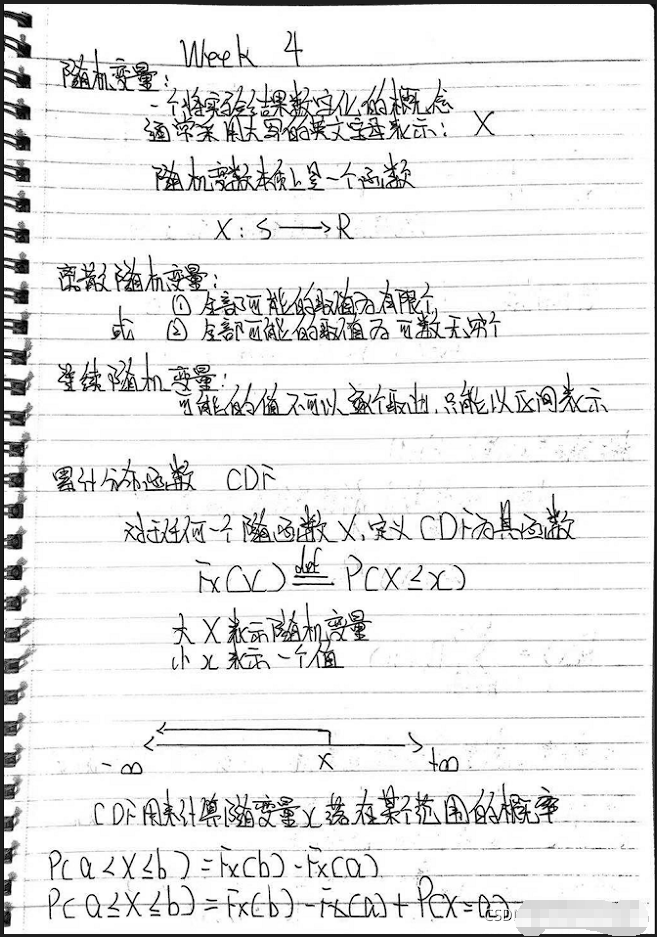 Week 4
随机变量:
一个将实验结果数字化的概念
通常采用大写的英文字母表示: X
随机变数本质上是一个函数
X: S → R
离散随机变量:
① 全部可能的取值为有限个
或 ② 全部可能的取值为可数无穷个
连续随机变量:
可能的值不可以逐个取出,只能以区间表示
累计分布函数 CDF
对于任何一个随函数X,定义CDF为其函数
Fx(x) ≝ P(X≤x)
大X表示随机变量
小x表示一个值
-∞ x +∞
CDF用来计算随变量x落在某个范围的概率
P(a<X≤b) = Fx(b) - Fx(a)
P(a≤X≤b) = Fx(b) - Fx(a) + P(X=a)
CSDN